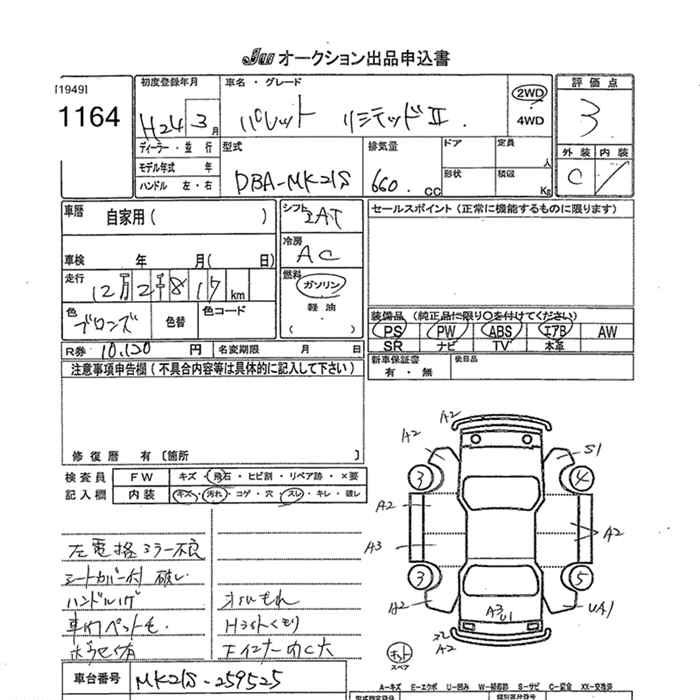 JU オークション出品申込書
[1949]
1164
初度登録年月
H24 3月
車名・グレード
パレット リミテッドⅡ
2WD
4WD
評価点
3
外装 内装
C
ディーラー・並行
モデル年式 年
ハンドル 左・右
型式
DBA-MK21S
排気量
660.cc
ドア
定員 人
形状
積載 Kg
車歴 自家用( )
シフト IAT
セールスポイント(正常に機能するものに限ります)
車検 年 月( 日)
冷房 AC
走行
km
燃料
ガソリン
軽油
( )
色 ブロンズ
色替
色コード
装備品 (純正品に限り○を付けてください)
PS PW ABS エアB AW
SR ナビ TV 本革
R券 10,120 円 名変期限 月 日
新車保証書
有・無
後日品
注意事項申告欄(不具合内容等は具体的に記入して下さい)
修復歴 有〔箇所 〕
検査員 FW キズ・飛石・ヒビ割・リペア跡・×要
記入欄 内装 キズ・汚れ・コゲ・穴・スレ・キレ・破レ
左電格ミラー不良
シートカバー付 破レ
ハンドルハゲ
オイルもれ
Hライトくもり
A2
A2 S1
3 4
A2
A3 A2
3 5
A2 A3 U1 UA1
A2
スペア
車台番号 MK21S-259525
A-キズ E-エクボ U-凹み W-補修跡 S-サビ C-腐食 XX-交換済